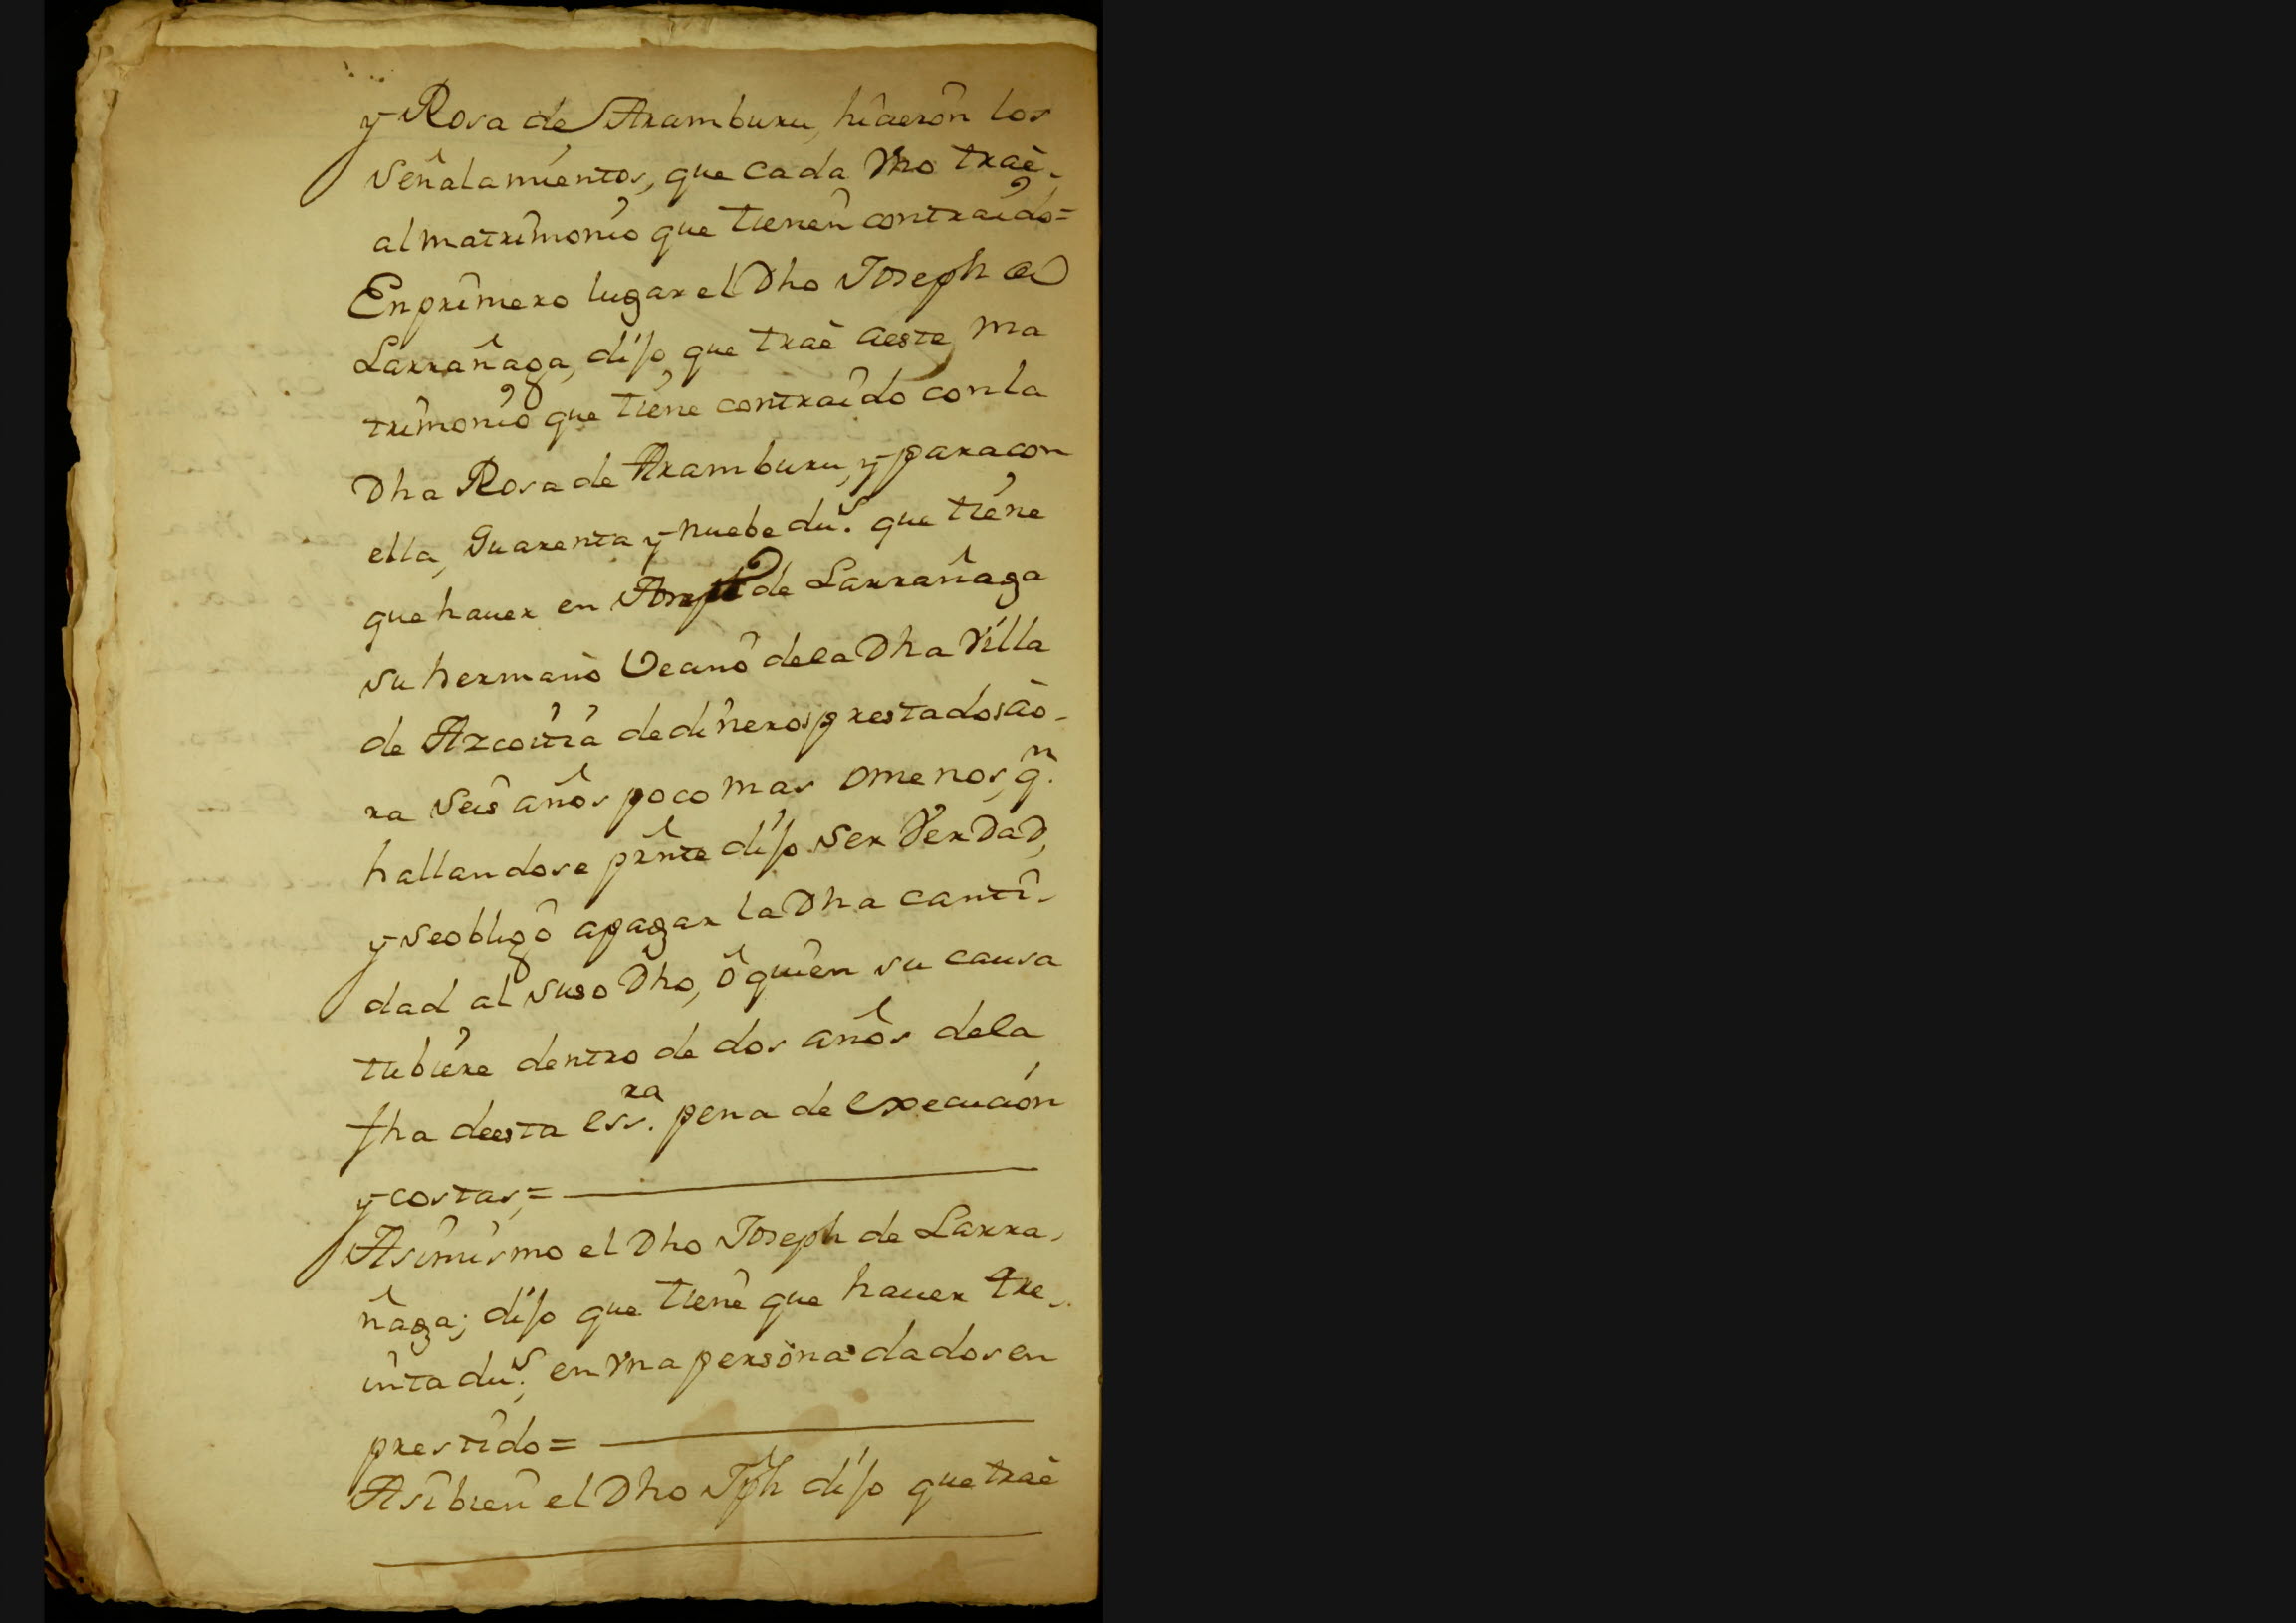 y Rosa de Aramburu, hicieron los
señalamientos, que cada Vno traè
al matrimonio que tienen contraido=
En primero lugar el Dho Joseph de
Larrañaga, dijo que traè aeste ma
trimonio que tiene contraido con la
Dha Rosa de Aramburu, y para con
ella, Quarenta y nuebe dus. que tiene
que hauer en de Larrañaga
su hermano Vecino dela Dha Villa
de Azcoitia de dineros prestados ào-
ra seis años poco mas omenos, qn.
hallandose prnte dijo ser VerDaD,
y se obligò apagar la Dha canti-
dad al suso Dho, ò quien su causa
tubiere dentro de dos años dela
fha deesta essra. pena de execucion
y costas,=
Asimismo el Dho Joseph de Larra-
ñaga; dijo que tiene que hauer tre-
inta dus., en Vna persona dados en
prestido=
Asibien el Dho Jph dijo que traè